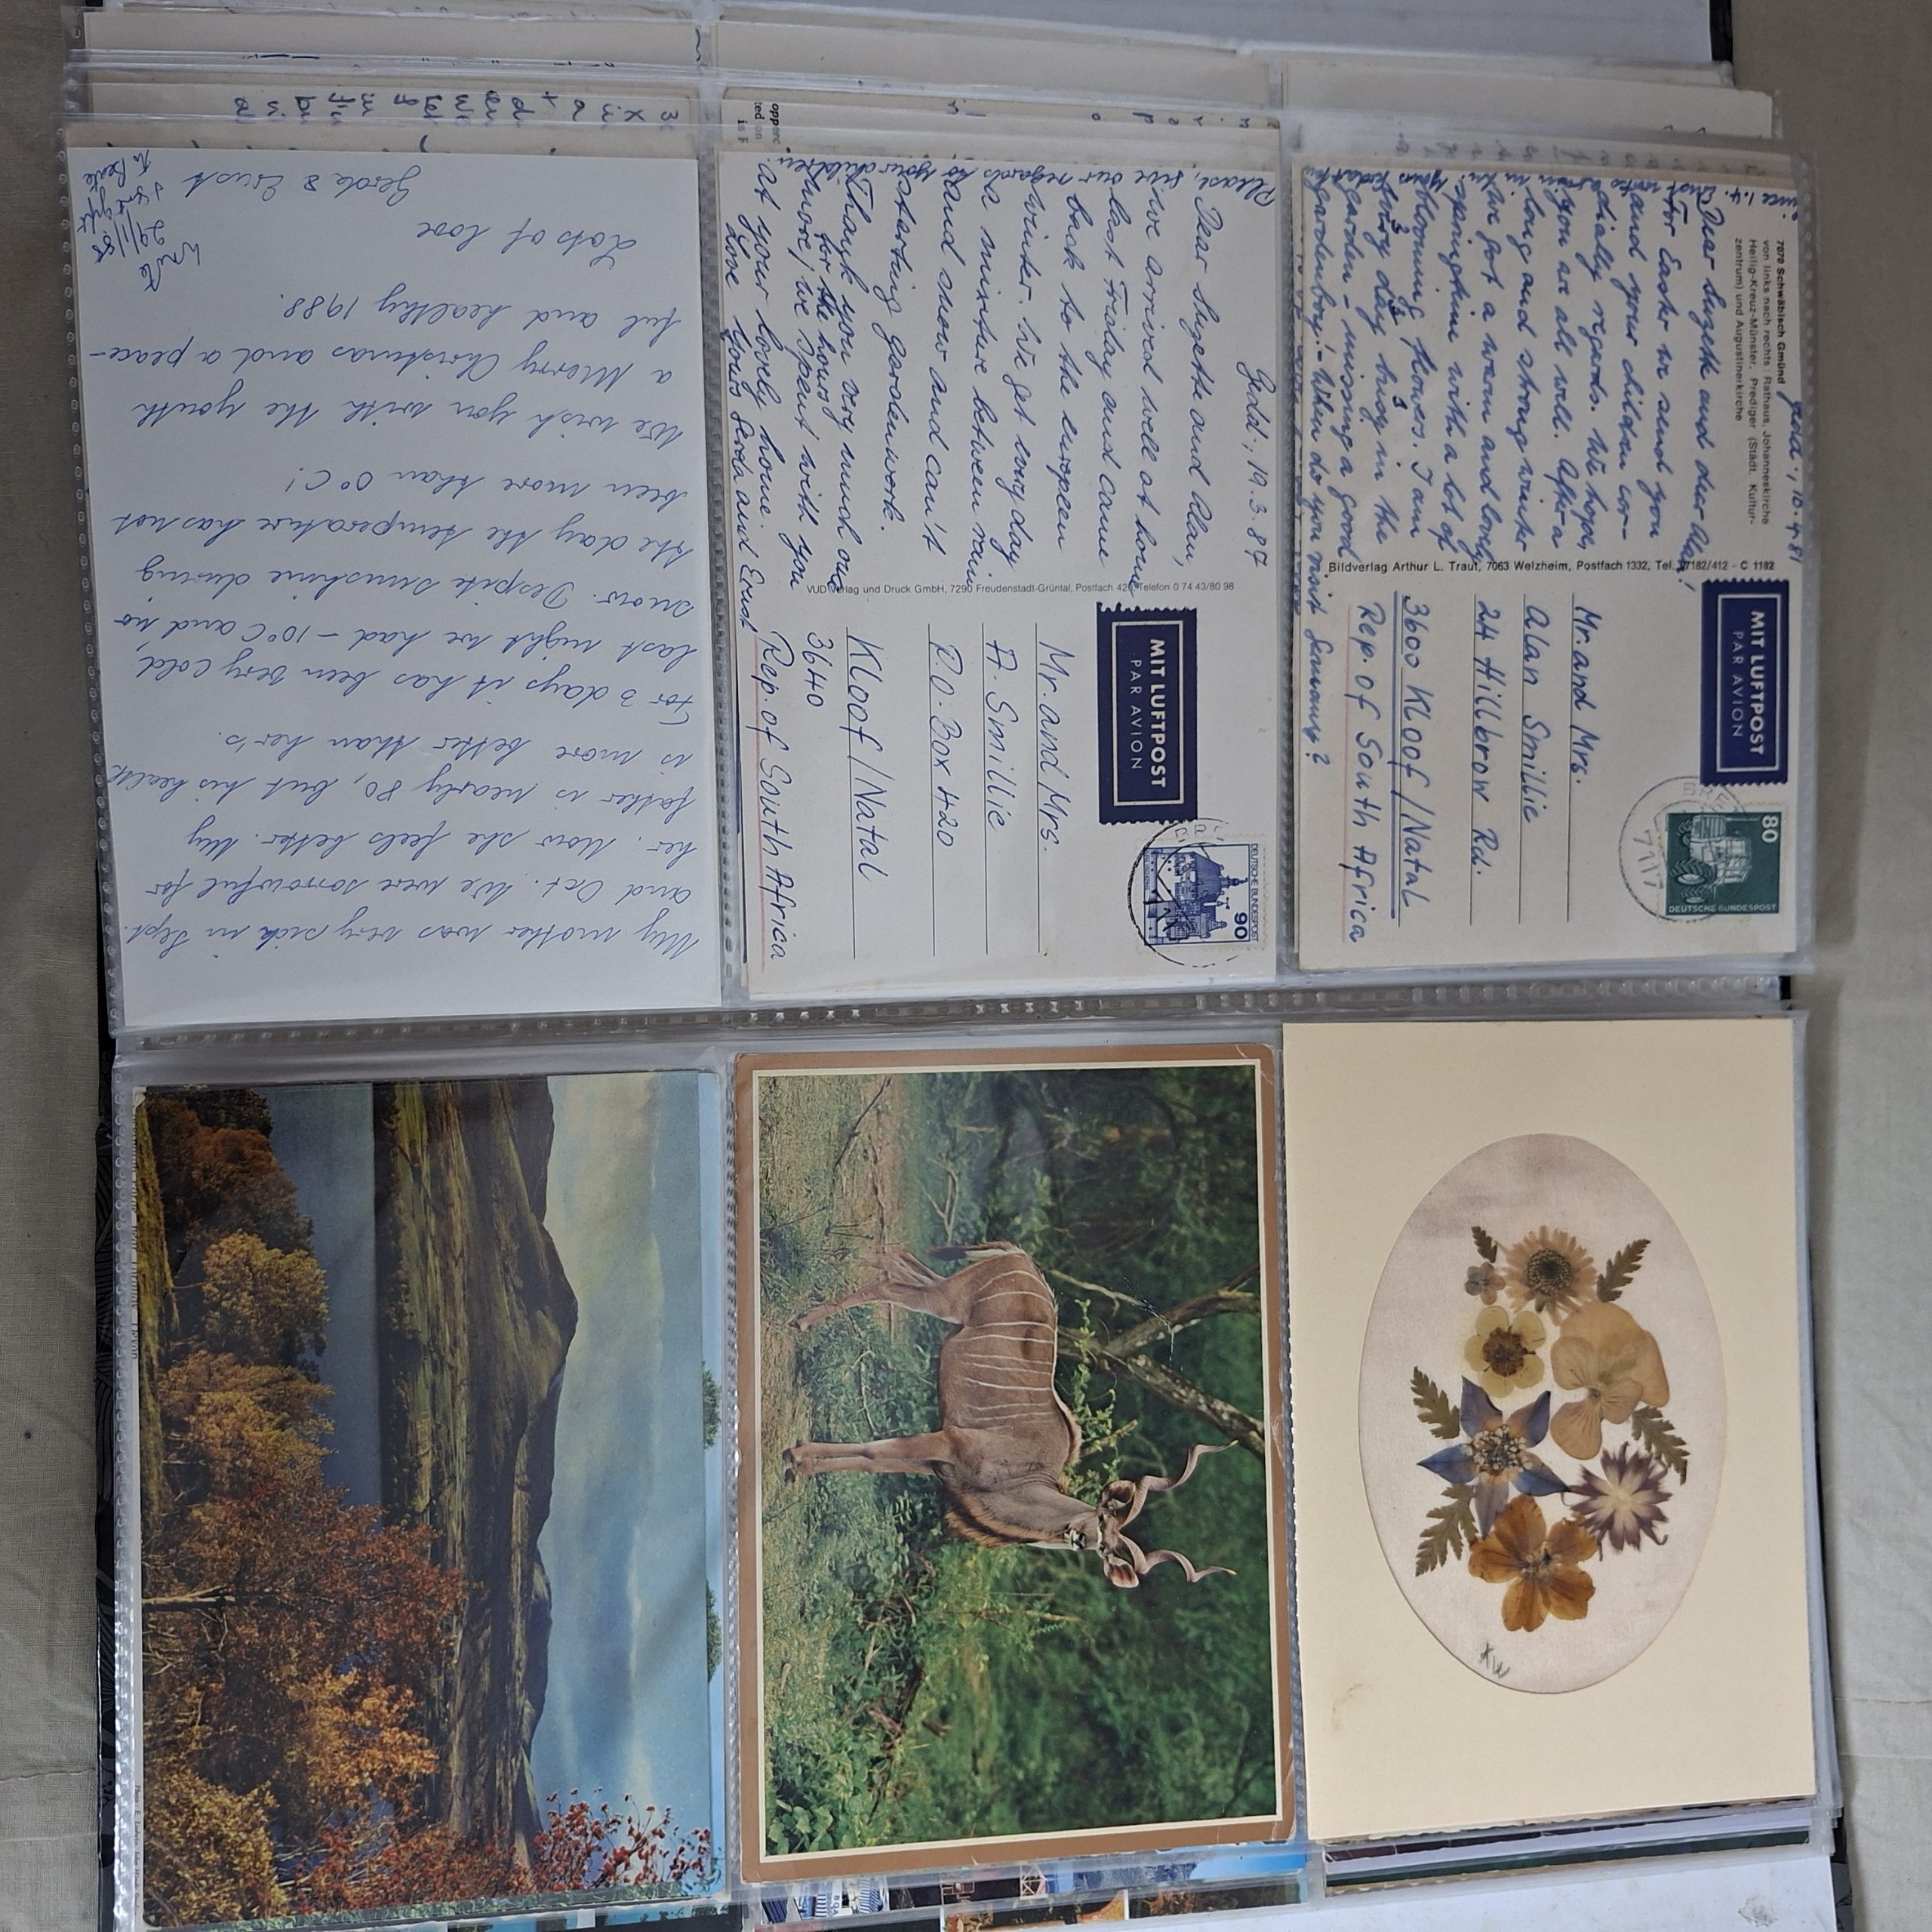 7070 Schwäbisch Gmünd
von links nach rechts: Rathaus, Johanneskirche
Heilig-Kreuz-Münster, Prediger (Städt. Kultur-
zentrum) und Augustinerkirche
Dear Suzette and dear Alan!
For Easter we send you
and your children cor-
dially regards. We hope,
you are all well. After a
long and strong winter
we got a warm and lovely
springtime with a lot of
blooming flowers. I am
every day busy in the
garden - missing a good
gardenboy! - When do you visit Germany?
Bildverlag Arthur L. Traut, 7063 Welzheim, Postfach 1332, Tel. 07182/412 - C 1182
MIT LUFTPOST
PAR AVION
80
DEUTSCHE BUNDESPOST
Mr. and Mrs.
Alan Smillie
24 Hillbrow Rd.
3600 Kloof/Natal
Rep. of South Africa
Please, give our regards to your children.
Gmd., 19.3.87
Dear Suzette and Alan,
we arrived well at home
last Friday and came
back to the europeen
winter. We get every day
a mixture between rain
and snow and can't
starting gardenwork.
Thank you very much once
more, for the hours
we spent with you
at your lovely home.
Love Yours Gerda and Ernst
VUD Verlag und Druck GmbH, 7290 Freudenstadt-Grüntal, Postfach 420, Telefon 0 74 43/80 98
MIT LUFTPOST
PAR AVION
90
DEUTSCHE BUNDESPOST
Mr. and Mrs.
A. Smillie
P.O. Box 420
Kloof/Natal
3640
Rep. of South Africa
My mother was very sick in Sept.
and Oct. We were sorrowful for
her. Now she feels better. My
father is nearly 80, but his health
is more better than her's.
For 3 days it has been very cold,
last night we had -10°C and no
snow. Despite sunshine during
the day the temperature has not
been more than 0°C!
We wish you with the youth
a Merry Christmas and a peace-
ful and healthy 1988.
Lots of love
Gerda & Ernst
Wrote
29/1/88
to Beate
KW